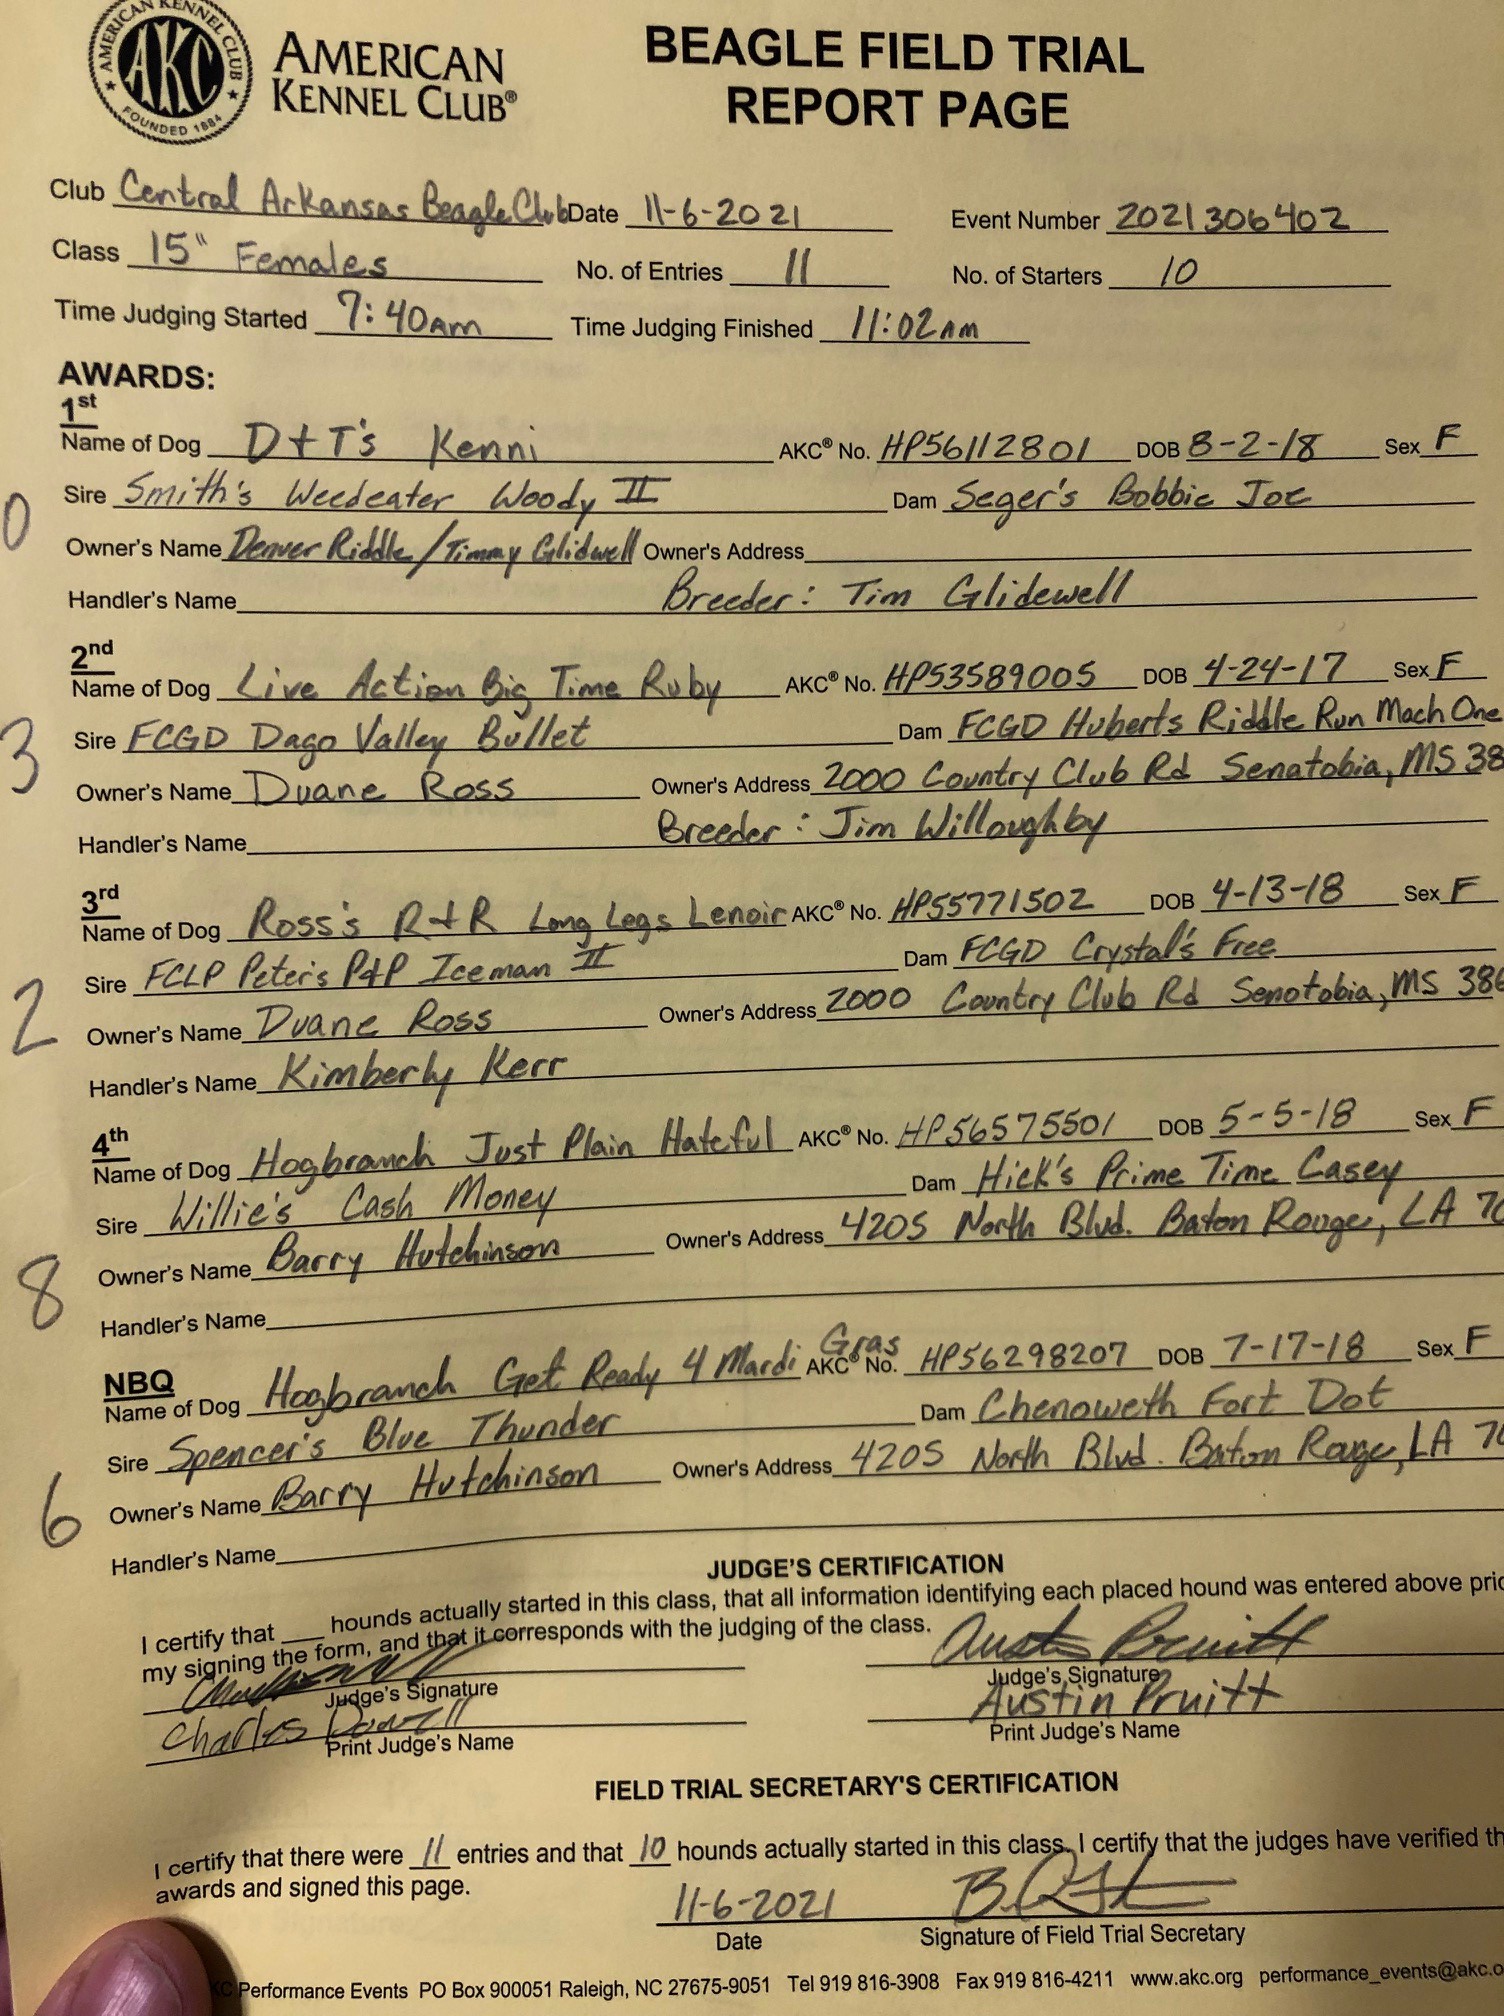 AMERICAN KENNEL CLUB
AKC
FOUNDED 1884
AMERICAN
KENNEL CLUB®
BEAGLE FIELD TRIAL
REPORT PAGE
Club Central Arkansas Beagle Club Date 11-6-2021 Event Number 2021306402
Class 15" Females No. of Entries 11 No. of Starters 10
Time Judging Started 7:40am Time Judging Finished 11:02am
AWARDS:
1st
Name of Dog D+T's Kenni AKC® No. HP56112801 DOB 8-2-18 Sex F
Sire Smith's Weedeater Woody II Dam Seger's Bobbie Joe
0
Owner's Name Denver Riddle/Timmy Glidwell Owner's Address
Handler's Name Breeder: Tim Glidewell
2nd
Name of Dog Live Action Big Time Ruby AKC® No. HP53589005 DOB 4-24-17 Sex F
Sire FCGD Dago Valley Bullet Dam FCGD Huberts Riddle Run Mach One
3
Owner's Name Duane Ross Owner's Address 2000 Country Club Rd Senatobia, MS 38
Handler's Name Breeder: Jim Willoughby
3rd
Name of Dog Ross's R+R Long Legs Lenoir AKC® No. HP55771502 DOB 4-13-18 Sex F
Sire FCLP Peter's P+P Iceman II Dam FCGD Crystal's Free
2
Owner's Name Duane Ross Owner's Address 2000 Country Club Rd Senotobia, MS 386
Handler's Name Kimberly Kerr
4th
Name of Dog Hogbranch Just Plain Hateful AKC® No. HP56575501 DOB 5-5-18 Sex F
Sire Willie's Cash Money Dam Hick's Prime Time Casey
8
Owner's Name Barry Hutchinson Owner's Address 4205 North Blvd. Baton Rouge, LA 70
Handler's Name
NBQ
Name of Dog Hogbranch Get Ready 4 Mardi Gras AKC® No. HP56298207 DOB 7-17-18 Sex F
Sire Spencer's Blue Thunder Dam Chenoweth Fort Dot
6
Owner's Name Barry Hutchinson Owner's Address 4205 North Blvd. Baton Rouge, LA 70
Handler's Name
JUDGE'S CERTIFICATION
I certify that hounds actually started in this class, that all information identifying each placed hound was entered above
my signing the form, and that it corresponds with the judging of the class.
Austin Pruitt
Judge's Signature Judge's Signature
Charles Austin Pruitt
Print Judge's Name Print Judge's Name
FIELD TRIAL SECRETARY'S CERTIFICATION
I certify that there were 11 entries and that 10 hounds actually started in this class. I certify that the judges have verified th
awards and signed this page.
11-6-2021
Date Signature of Field Trial Secretary
KC Performance Events PO Box 900051 Raleigh, NC 27675-9051 Tel 919 816-3908 Fax 919 816-4211 www.akc.org performance_events@akc.o